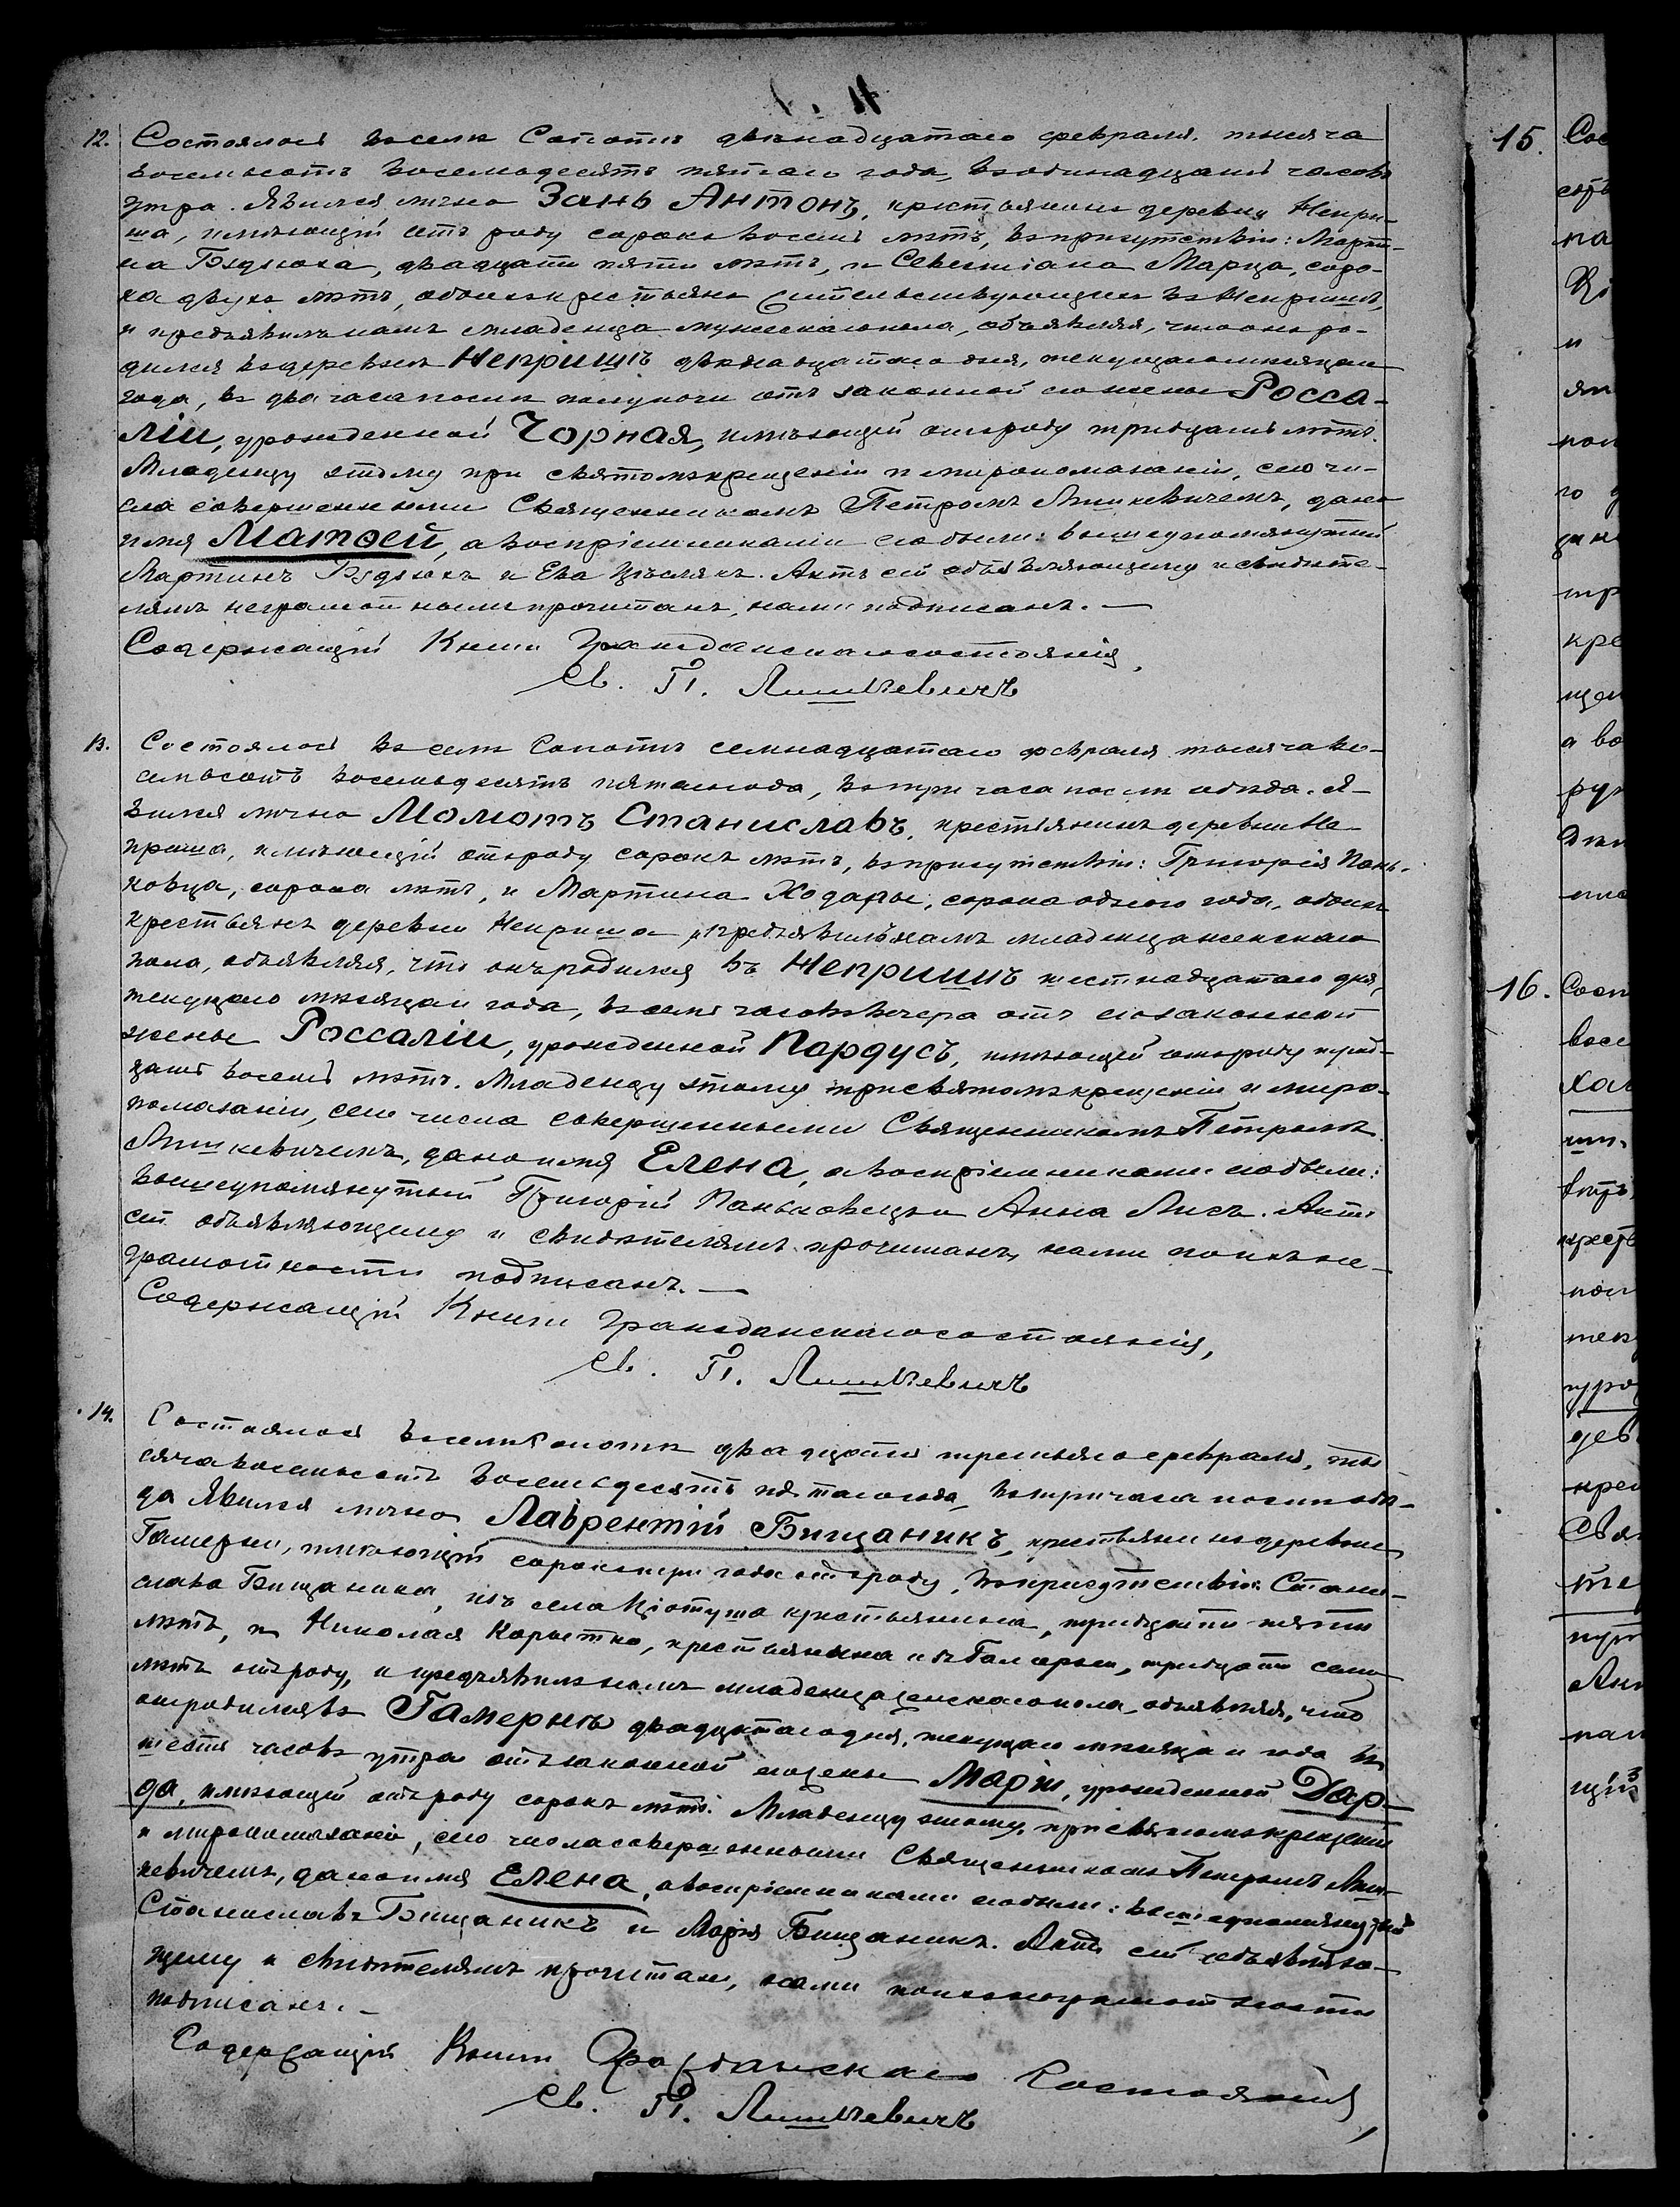 12. Состоялось въ селѣ Сопотѣ двѣнадцатаго февраля, тысяча
восемьсотъ восемьдесятъ пятаго года, въ одинадцать часовъ
утра. Явился лично Зань Антонъ, крестьянинъ деревни Непри-
ша, имѣющій отъ роду сорокъ восемь лѣтъ, въ присутствіи: Марти-
на, двадцати пяти лѣтъ, и Севетіана Марца, соро-
ка двухъ лѣтъ, обоихъ крестьянъ жительствующихъ въ Непришѣ,
и предъявилъ намъ младенца мужескаго пола, объявляя, что онъ ро-
дился въ деревнѣ Непришѣ двѣнадцатаго дня, текущаго мѣсяца и
года, въ два часа послѣ полуночи отъ законной его жены Росса-
ліи, урожденной Чорная, имѣющей отъ роду тридцать лѣтъ.
Младенцу этому при святомъ крещеніи и миропомазаніи, сего чи-
сла совершенными Священникомъ Петромъ Лишкевичемъ, дано
имя Матѳей, а воспріемниками его были: вышеупомянутый
Мартинъ и Ева Цѣслякъ. Актъ сей объявляющему и свидѣте-
лямъ неграмотнымъ прочитанъ, нами подписанъ. —
Содержащій Книги Гражданскаго состоянія,
Св. П. Лишкевичъ
13. Состоялось въ селѣ Сопотѣ семнадцатаго февраля тысяча во-
семьсотъ восемьдесятъ пятаго года, въ три часа послѣ обѣда. Я-
вился лично Момотъ Станиславъ, крестьянинъ деревни Не-
приша, имѣющій отъ роду сорокъ лѣтъ, въ присутствіи: Григорія Пань-
ковца, сорока лѣтъ, и Мартина Ходары, сорока одного года, обоихъ
крестьянъ деревни Неприша и предъявилъ намъ младенца женскаго
пола, объявляя, что онъ родился въ Непришѣ шестнадцатаго дня,
текущаго мѣсяца и года, въ семь часовъ вечера отъ его законной
жены Россаліи, урожденной Пардусъ, имѣющей отъ роду трид-
цать восемь лѣтъ. Младенцу этому при святомъ крещеніи и миро-
помазаніи, сего числа совершенными Священникомъ Петромъ
Лишкевичемъ, дано имя Елена, а воспріемниками его были:
вышеупомянутый Григорій Паньковецъ и Анна Лисъ. Актъ
сей объявляющему и свидѣтелямъ прочитанъ, нами по ихъ не-
грамотности подписанъ. —
Содержащій Книги Гражданскаго состоянія,
Св. П. Лишкевичъ
14. Состоялось въ селѣ Сопотѣ двадцать третьяго февраля, ты-
сяча восемьсотъ восемьдесятъ пятаго года, въ три часа послѣ обѣ-
да Явился лично Лаврентій Бищаникъ, крестьянинъ деревни
Гамерни, имѣющій сорокъ три года отъ роду, въ присутствіи: Стани-
слава Бищаника, изъ села Ціотуша крестьянина, тридцати пяти
лѣтъ, и Николая, крестьянина изъ Гамерни, тридцати семи
лѣтъ отъ роду, и предъявилъ намъ младенца женскаго пола, объявляя, что
онъ родился въ Гамернѣ двадцатаго дня, текущаго мѣсяца и года въ
шесть часовъ утра отъ законной его жены Маріи, урожденной Дар-
да, имѣющей отъ роду сорокъ лѣтъ. Младенцу этому, при святомъ крещеніи
и миропомазаніи, сего числа совершенными Священникомъ Петромъ Лиш-
кевичемъ, дано имя Елена, а воспріемниками его были: вышеупомянутый
Станиславъ Бищаникъ и Марія Бищаникъ. Актъ сей объявляю-
щему и свидѣтелямъ прочитанъ, нами по ихъ неграмотности
подписанъ. —
Содержащій Книги Гражданскаго Состоянія,
Св. П. Лишкевичъ
15.
16.